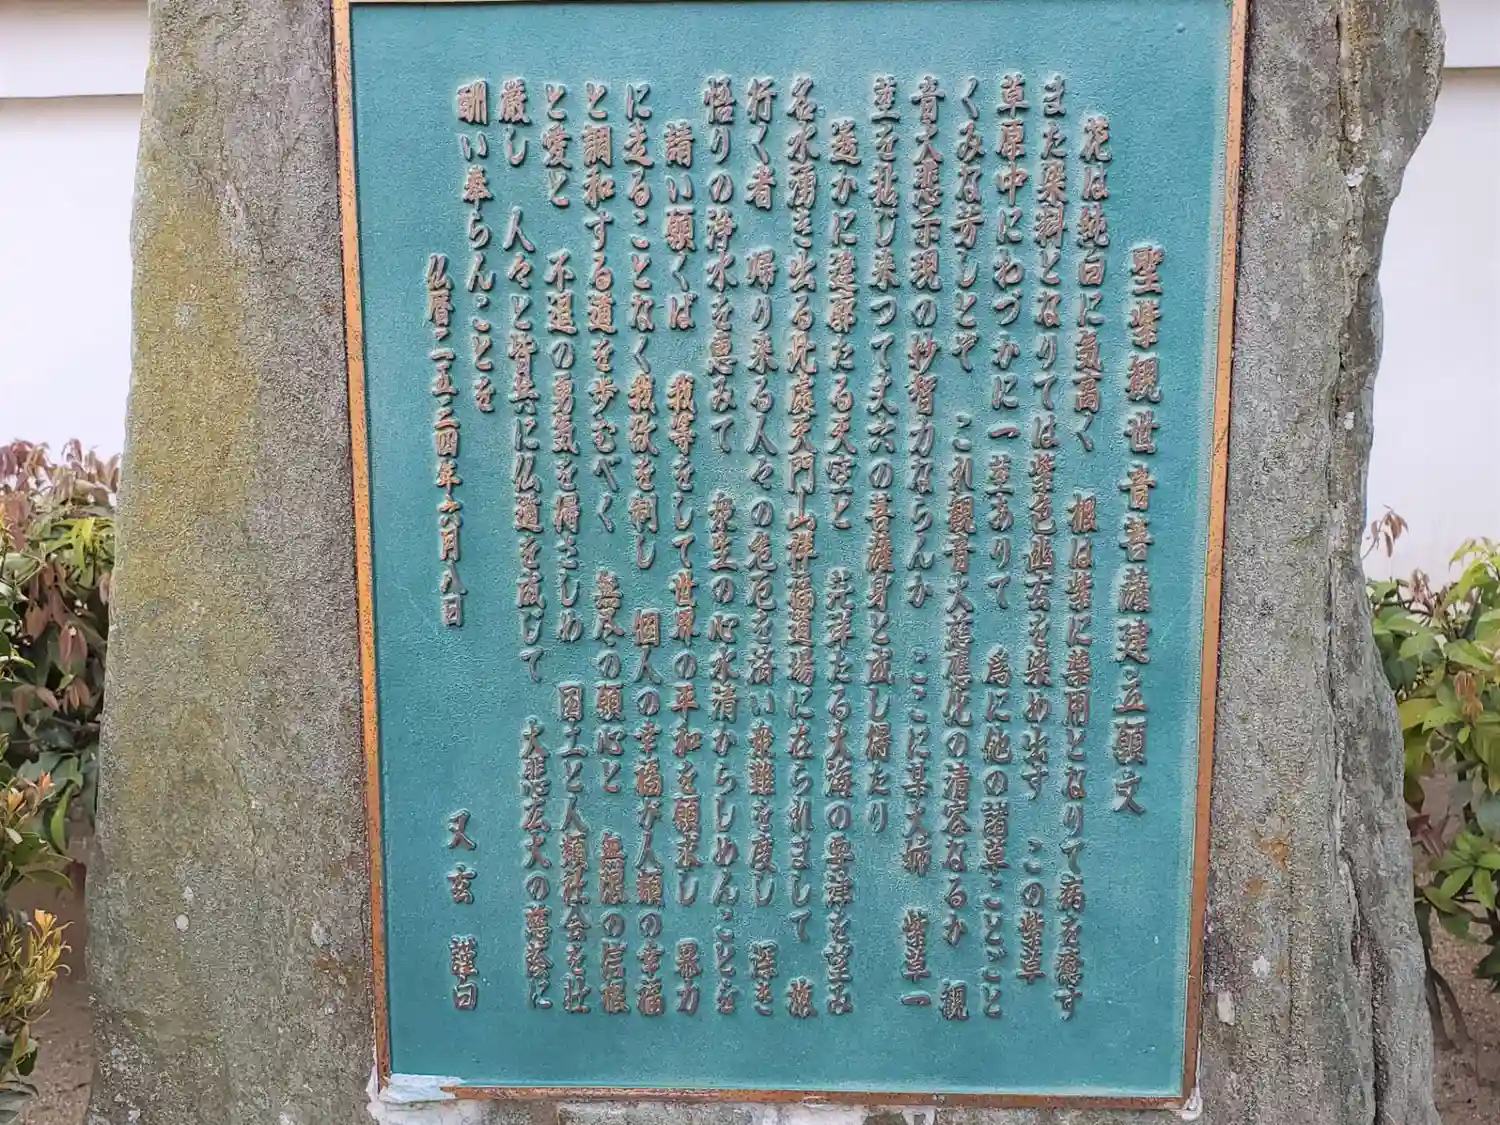 聖紫観世音菩薩建立願文
花は純白に気高く 根は紫に薬用となりて病を癒す
また染料となりては紫色幽玄を染め出す この紫草
草原中にわづかに一茎ありて 為に他の諸草ことごと
くみな芳しとぞ これ観音大慈應化の清容なるか 観
音大悲示現の妙智力ならんか ここに某大姉 紫草一
茎を札じ来つて丈六の菩薩身と成し得たり
遙かに遼廓たる天空と 茫洋たる大海の要津を望み
名水湧き出る此處天門山祥福道場に在られまして 旅
行く者 帰り来る人々の危厄を済い衆難を度し 深き
悟りの浄水を恵みて 衆生の心水清からしめんことを
請い願くば 我等をして世界の平和を願求し 暴力
に走ることなく我欲を制し 個人の幸福が人類の幸福
と調和する道を歩むべく 無尽の願心と 無限の信根
と愛と 不退の勇気を得さしめ 国土と人類社会を荘
厳し 人々と皆共に仏道を成じて 大悲広大の慈蔭に
酬い奉らんことを
仏暦二五三四年六月八日
又玄 謹白